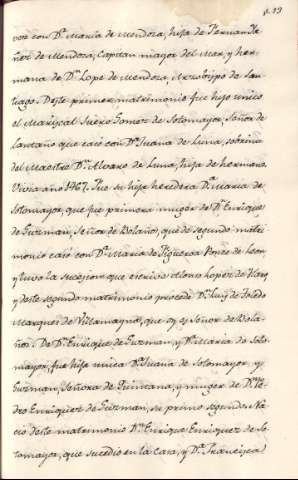 p. 19
vos con Dª Maria de Mendoza, hija de Fernan Ya
ñez de Mendoza, Capitan mayor del Mar, y her-
mana de Dⁿ Lope de Mendoza, Arzobispo de San-
tiago. Deste primer matrimonio fue hijo unico
el Mariscal Suero Gomez de Sotomayor, Señor de
Lantaño que casó con Dª Juana de Luna, sobrina
del Maestre Dⁿ Alvaro de Luna, hija de hermano.
Vivia año 1467. Fue su hija heredera Dª Maria de
Sotomayor, que fue primera muger de Dⁿ Enrique
de Guzman, Señor de Bolaños, que de segundo matri-
monio casó con Dª Maria de Figueroa Ponze de Leon,
y tuvo la succesion que escrive Alonso Lopez de Haro,
y deste segundo matrimonio procede Dⁿ Luis de Toledo
Marques de Villamayna, que oy es Señor de Bola-
ños. De Dⁿ Enrique de Guzman, y Dª Maria de Soto-
mayor, fue hija unica Dª Juana de Sotomayor, y
Guzman, Señora de Quintana, y muger de Dⁿ Pe-
dro Enriquez de Guzman, su primo segundo. Na-
ció deste matrimonio Dⁿ Enrique Enriquez de So-
tomayor, que sucedió en la casa, y Dª Francisca